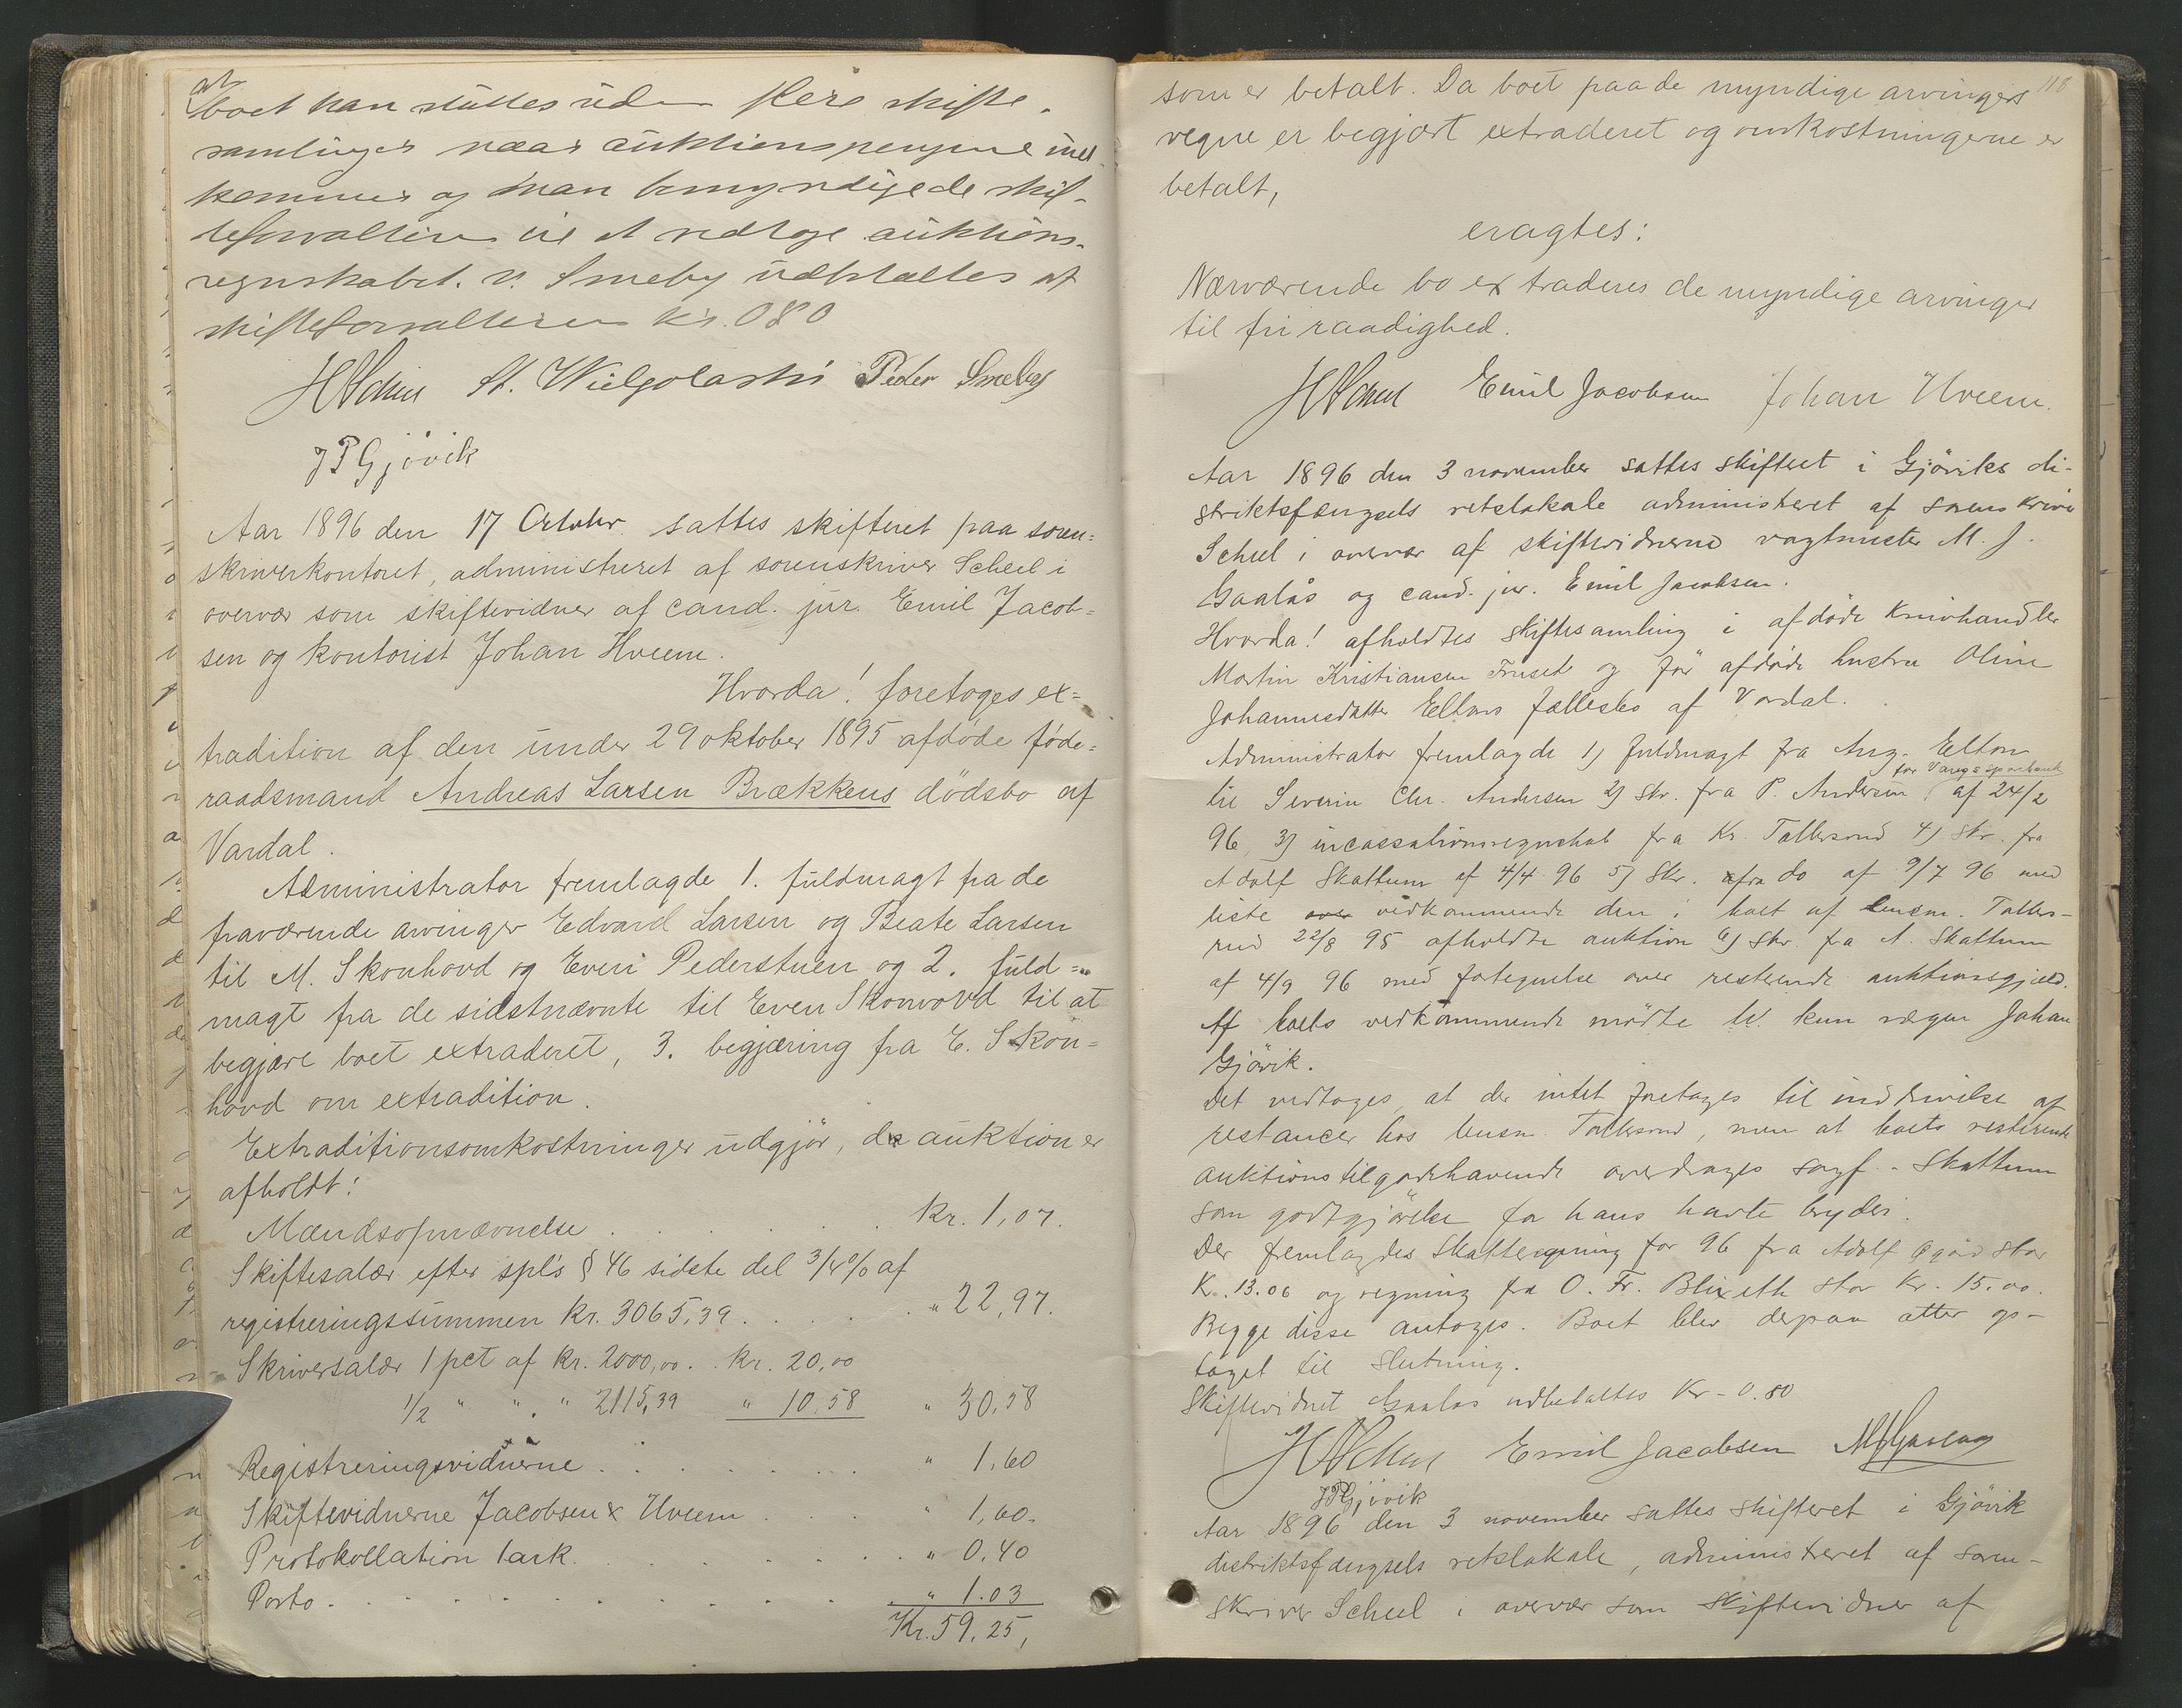 at
boet kan sluttes uden flere skifte-
samlinger naar auktionspengene ind-
kommer og man bemyndigede skif-
teforvalteren til at vedtage auktions-
regnskabet. V. Smeby udbetaltes af
skifteforvalteren kr. 080
HScheel St. Wielgolaski Peder Smeby
J P Gjövik
Aar 1896 den 17 October sattes skifteret paa soren=
skriverkontoret, administreret af sorenskriver Scheel i
overvær som skiftevidner af cand. jur. Emil Jacob=
sen og kontorist Johan Hveem.
Hvorda! foretoges ex=
tradition af den under 29 oktober 1895 afdøde føde=
raadsmand Andreas Larsen Brækkens dödsbo af
Vardal.
Administrator fremlagde 1. fuldmagt fra de
fraværende arvinger Edvard Larsen og Beate Larsen
til M. Skonhovd og Even Pederstuen og 2. fuld=
magt fra de sidstnævnte til Even Skonvovd til at
begjære boet extraderet, 3. begjæring fra E. Skon=
hovd om extradition.
Extraditionsomkostninger udgjør, da auktion er
afholdt:
Mændsopnævnelse . . . . kr. 1,07.
Skiftesalær efter spl's § 46 sidste del 3/4 % af
registreringssummen kr. 3065,39 . . . . " 22,97.
Skriversalær 1 pct af kr. 2000,00. . kr. 20,00
1/2 " " " 2115,39 " 10.58 " 30,58
Registreringsvidnerne . . . . . . " 1,60
Skiftevidnerne Jacobsen & Hveem . . . " 1,60.
Protokollation 1 ark. . . . . . . " 0,40
Porto . . . . . . . . " 1.03
Kr. 59,25,
118
som er betalt. Da boet paa de myndige arvingers
vegne er begjært extraderet og omkostningerne er
betalt,
eragtes:
Nærværende bo extraderes de myndige arvinger
til fri raadighed.
HScheel Emil Jacobsen Johan Hveem.
Aar 1896 den 3 november sattes skifteret i Gjøviks di-
striktsfængsels retslokale administreret af sorenskriver
Scheel i overvær af skiftevidnerne vagtmester M. J.
Gaalås og cand. jur. Emil Jacobsen.
Hvorda! afholdtes skiftesamling i afdøde knivhandler
Martin Kristiansen Fruset og før afdøde hustru Oline
Johannesdatter Eltons fællesbo af Vardal.
Administrator fremlagde 1) fuldmagt fra Aug. Elton
for Vangs sparebank
til Severin Chr. Andersen 2) skr. fra P. Andersen, af 24/2
96, 3) incassationsregnskab fra Kr. Tollersrud 4) skr. fra
Adolf Skattum af 4/4 96 5) skr. fra do af 9/7 96 med
liste over vedkommende den i boet af lensm. Tollers-
rud 22/8 95 afholdte auktion 6) skr. fra A. Skattum
af 4/9 96 med fortegnelse over resterende auktionsgjæld.
Af boets vedkommende mødte kun værgen Johan
Gjövik.
Det vedtoges, at der intet foretages til inddrivelse af
restancer hos lensm. Tollersrud, men at boets resterende
auktionstilgodehavende overdrages sagf. Skattum
som godtgjørelse for hans havte bryderi.
Der fremlagdes skatteregning for 96 fra Adolf Øgård stor
Kr. 13.06 og regning fra O. Fr. Blixeth stor Kr. 15.00.
Begge disse antoges. Boet blev derpaa atter op-
taget til slutning.
Skiftevidnet Gaalås udbetaltes Kr - 0.80
HScheel Emil Jacobsen MJGaalaas
JPGjövik
Aar 1896 den 3 november sattes skifteret i Gjövik
distriktsfængsels retslokale, administreret af soren-
skriver Scheel i overvær som skiftevidner af